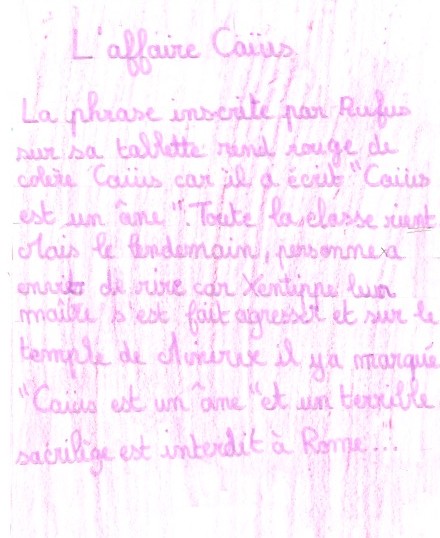 L'affaire Caïus
La phrase inscrite par Rufus
sur sa tablette rend rouge de
colère Caïus car il a écrit "Caïus
est un âne". Toute la classe rient
Mais le lendemain, personne a
envie de rire car Xentippe leur
maître s'est fait agresser et sur le
temple de il y a marqué
"Caius est un âne" et un terrible
sacrilège est interdit à Rome...